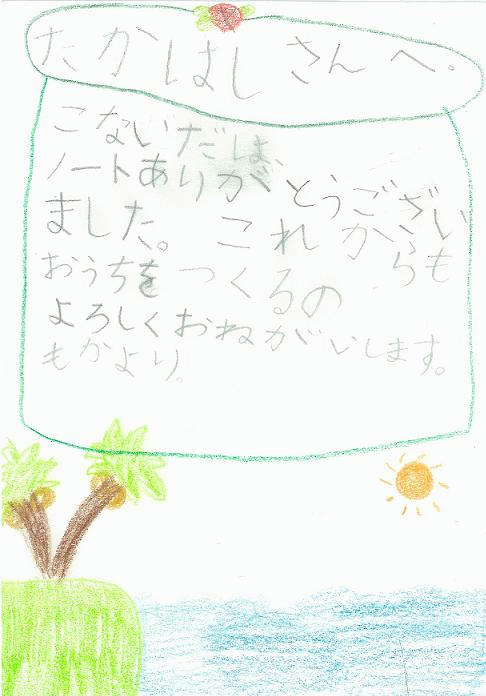 たかはしさんへ。
こないだは、
ノートありがとうござい
ました。これからも
おうちをつくるの
よろしくおねがいします。
もかより。